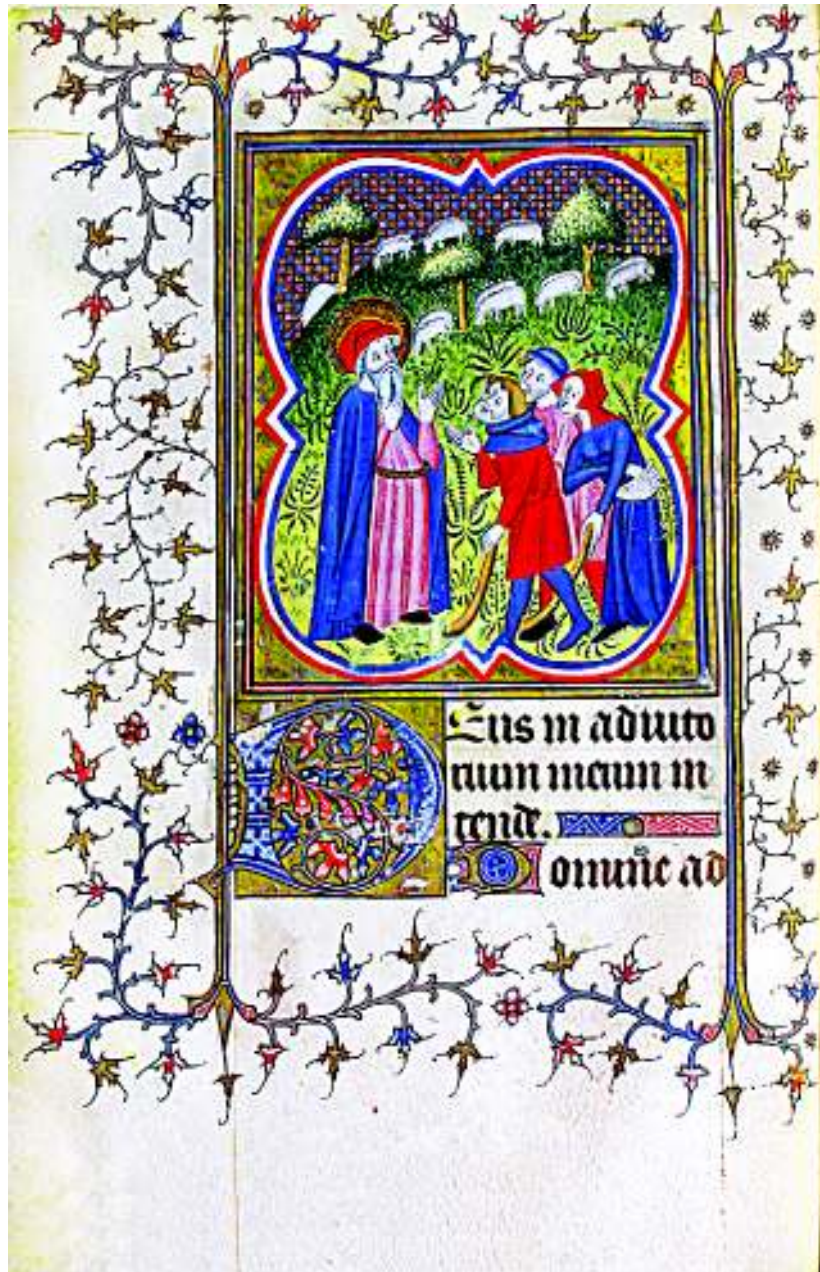 DEus in adiuto
rium meum in
tende.
Domine ad